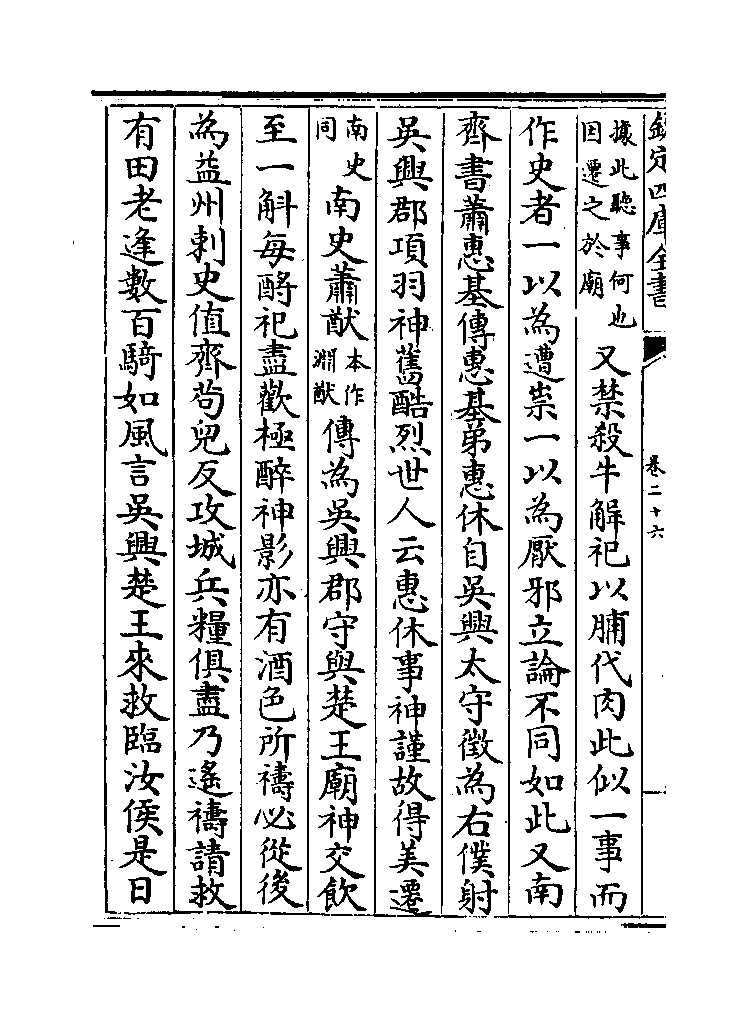 欽定四庫全書
卷二十六
據此聽事何也
因遷之於廟
又禁殺牛解祀以脯代肉此似一事而
作史者一以為遭祟一以為厭邪立論不同如此又南
齊書蕭惠基傳惠基弟惠休自吳興太守徵為右僕射
吳興郡項羽神舊酷烈世人云惠休事神謹故得美遷
南史
同
南史蕭猷
本作
淵猷
傳為吳興郡守與楚王廟神交飲
至一斛每酹祀盡歡極醉神影亦有酒色所禱必從後
為益州刺史值齊茍兒反攻城兵糧俱盡乃遙禱請救
有田老逢數百騎如風言吳興楚王來救臨汝侯是日